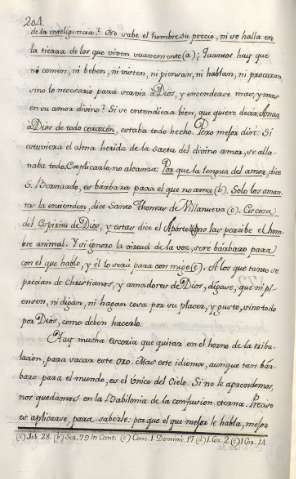 204.
de la inteligencia? No sabe el hombre su precio, ni se halla en
la tierra de los que viven suavemente (a); Quantos hay que
ni comen, ni beben, ni visten, ni piensan, ni hablan, ni procuran,
sino lo necesario para servir à Dios, y encenderse mas, y mas
en su amor divino? Si se entendiera bien, que quiere decir: Amar
à Dios de todo corazón, estaba todo hecho. Pero mejor dire: Si
estuviera el alma herida de la saeta del divino amor, se alla-
naba todo. Explicarlo no alcanza: Porque la lengua del amor, dice
S. Bernardo, es bárbara para el que no ama (b). Solo los aman-
tes la entienden, dice Santo Thomas de Villanueva (c). Carecen
del Espiritu de Dios, y estas dice el Apostol, no las percibe el hom-
bre animal. Y si ignoro la virtud de la voz, sere bárbaro para
con el que hablo, y él lo será para con migo (e). A los que
precian de Christianos, y amadores de Dios, digase, que ni pi-
ensen, ni digan, ni hagan cosa por su placer, y gusto, sino todo
por Dios, como deben hacerlo.
Hay mucha escoria que quitar en el horno de la tribu-
lación, para sacar este oro. Mas este idioma, aunque tan bár-
baro para el mundo, es el Unico del Cielo. Si no le aprendemos,
nos quedamos en la Babilonia de la confusion eterna. Preciso
es aplicarse, para saberle: por que el que mejor le habla, mejor
(a) Job. 28. (b) Ser. 79 in Cant. (c) Conc. 1 Domin. 17 (d) 1. Cor. 2 (e) 1 Cor. 14.